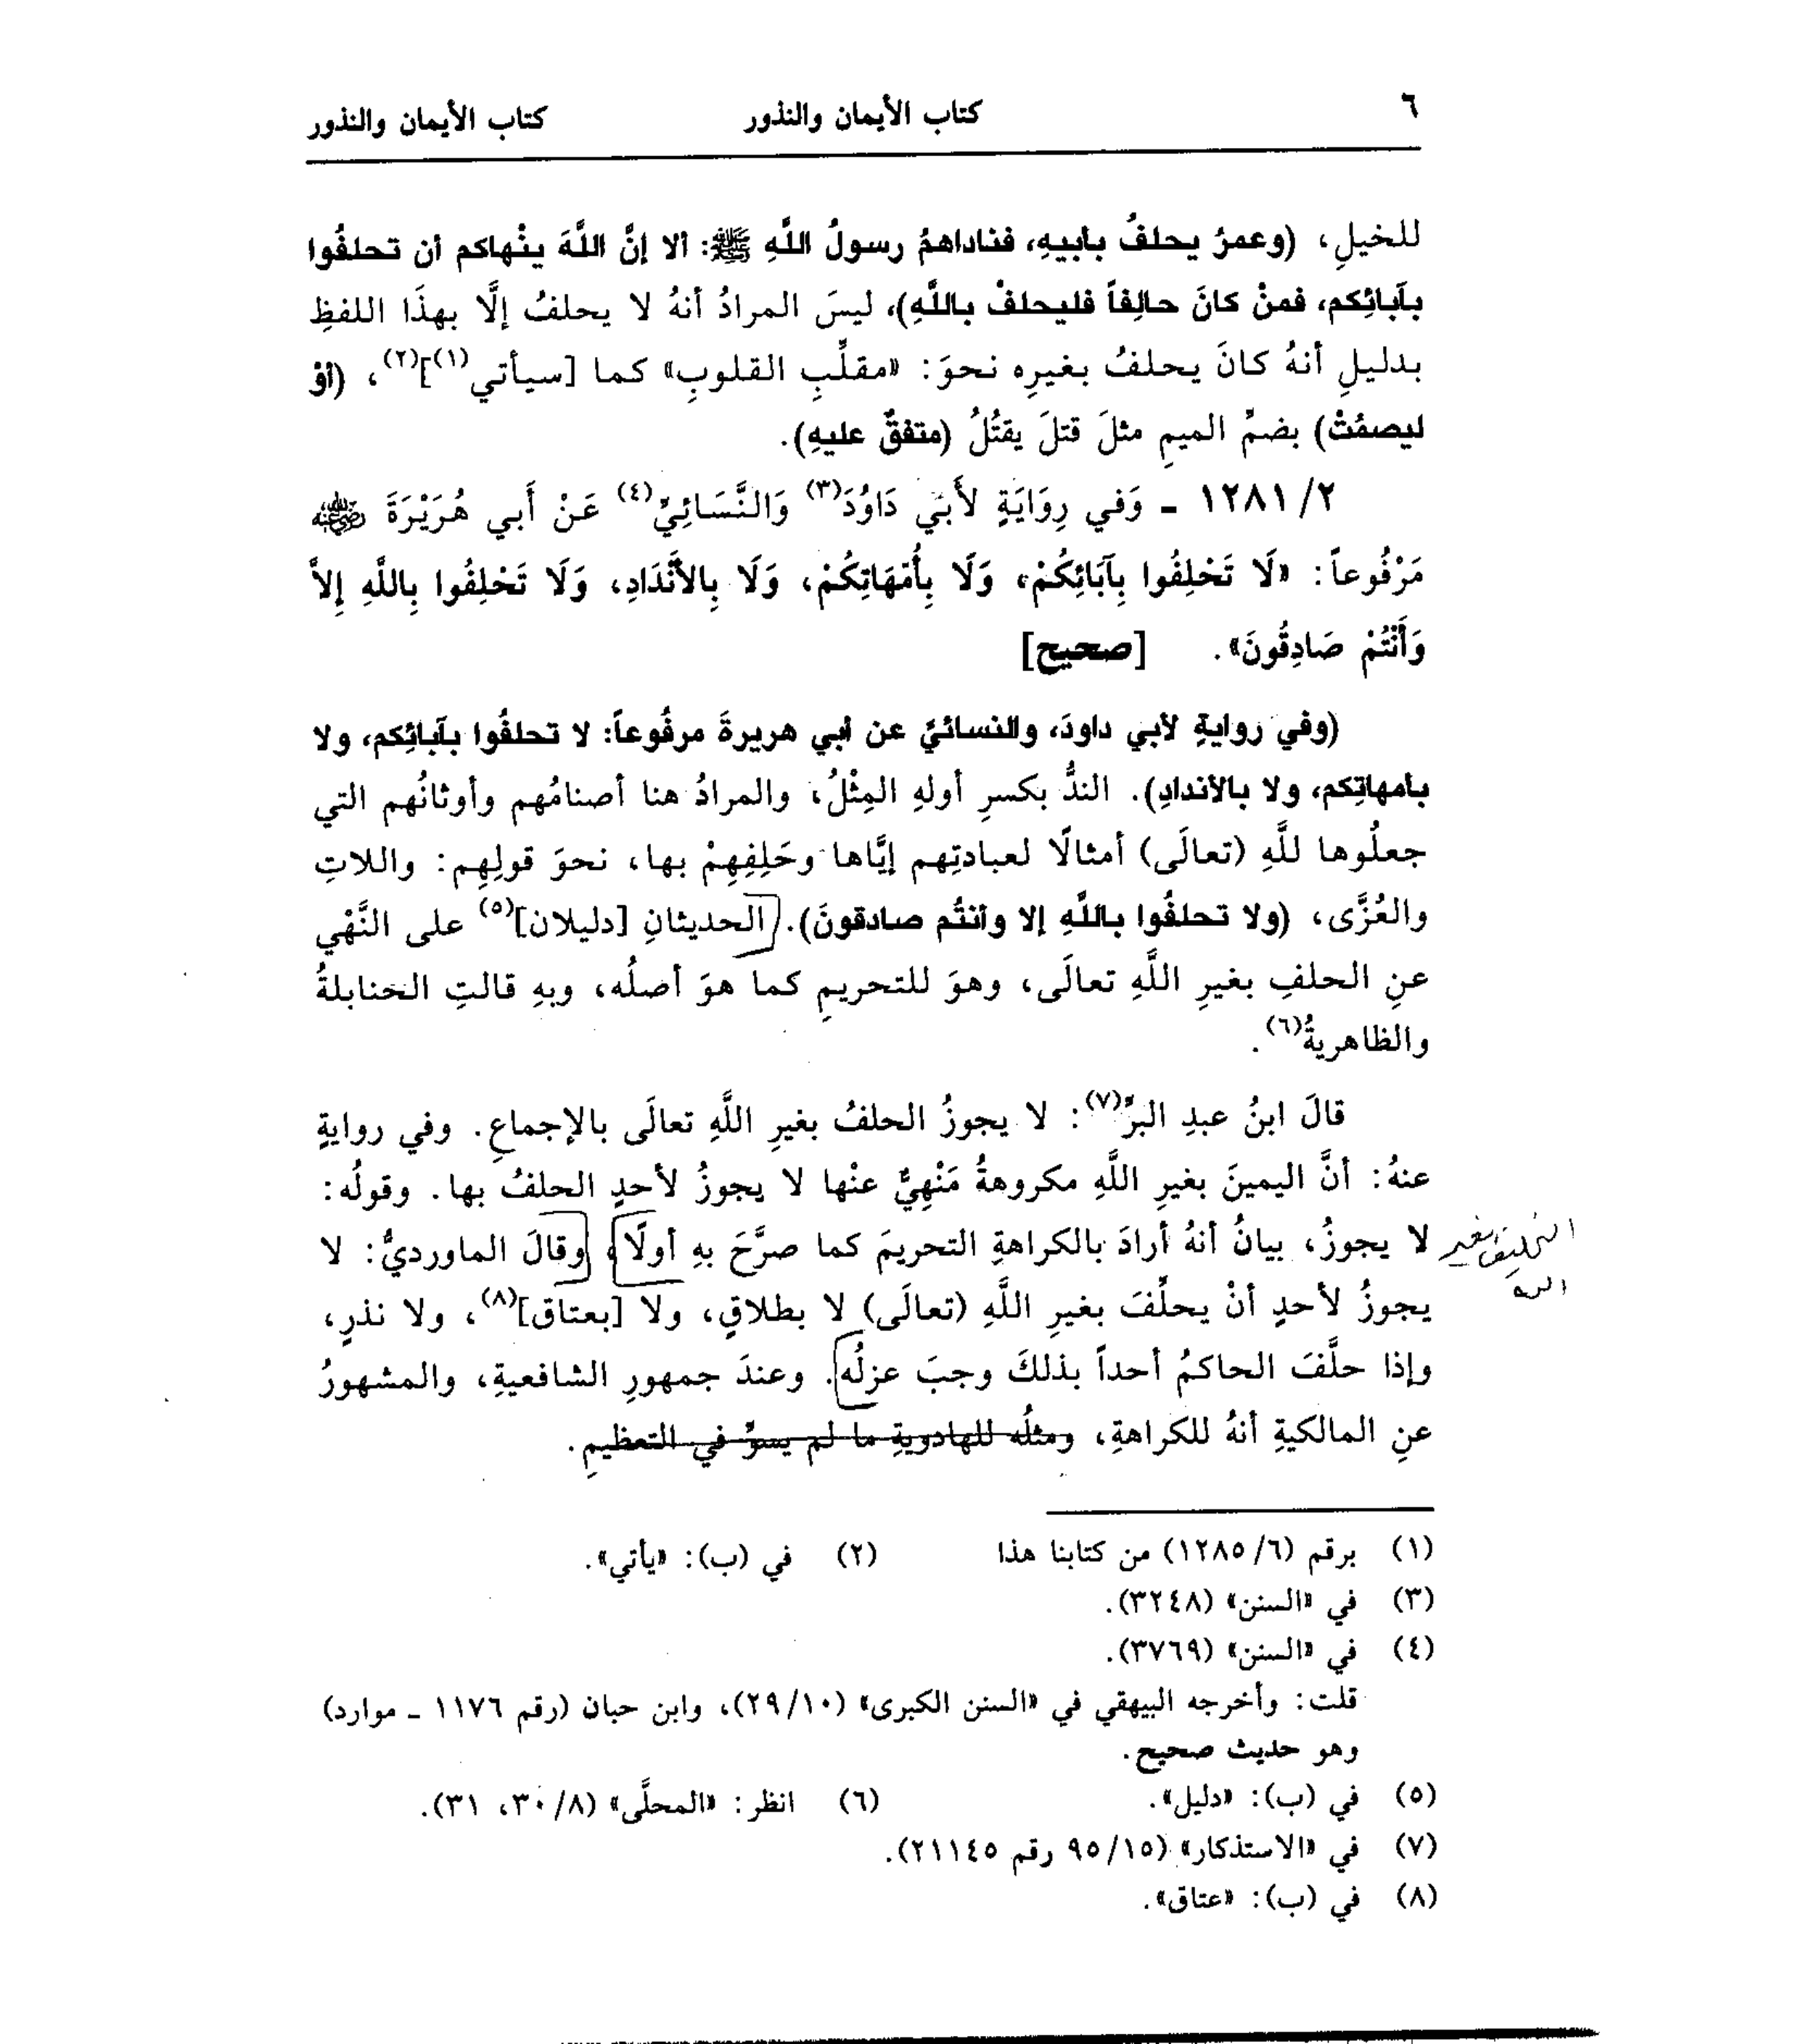 ٦ كتاب الأيمان والنذور كتاب الأيمان والنذور
للخيلِ، (وعمرُ يحلفُ بأبيهِ، فناداهمُ رسولُ اللَّهِ ﷺ: ألا إنَّ اللَّهَ ينْهاكم أن تحلفُوا
بآبائِكم، فمنْ كانَ حالِفاً فليحلفْ باللَّهِ)، ليسَ المرادُ أنهُ لا يحلفُ إلَّا بهذَا اللفظِ
بدليلِ أنهُ كانَ يحلفُ بغيرِه نحوَ: «مقلِّبِ القلوبِ» كما [سيأتي(١)](٢)، (أوْ
ليصمُتْ) بضمِّ الميمِ مثلَ قتلَ يقتُلُ (متفقٌ عليهِ).
١٢٨١/٢ - وَفي رِوَايَةٍ لأَبي دَاوُدَ(٣) وَالنَّسَائِيِّ(٤) عَنْ أَبي هُرَيْرَةَ رضي الله عنه
مَرْفُوعاً: «لَا تَحْلِفُوا بِآبَائِكُمْ، وَلَا بِأُمَّهَاتِكُمْ، وَلَا بِالأَنْدَادِ، وَلَا تَحْلِفُوا بِاللَّهِ إِلاَّ
وَأَنْتُمْ صَادِقُونَ». [صحيح]
(وفي روايةٍ لأبي داودَ، والنسائيِّ عن أبي هريرةَ مرفُوعاً: لا تحلفُوا بآبائِكم، ولا
بأمهاتِكم، ولا بالأندادِ). الندُّ بكسرِ أولهِ المِثْلُ، والمرادُ هنا أصنامُهم وأوثانُهم التي
جعلُوها للَّهِ (تعالَى) أمثالًا لعبادتِهم إيَّاها وحَلِفِهِمْ بها، نحوَ قولِهِم: واللاتِ
والعُزَّى، (ولا تحلفُوا باللَّهِ إلا وأنتُم صادقونَ). الحديثانِ [دليلان](٥) على النَّهْيِ
عنِ الحلفِ بغيرِ اللَّهِ تعالَى، وهوَ للتحريمِ كما هوَ أصلُه، وبهِ قالتِ الحنابلةُ
والظاهريةُ(٦).
قالَ ابنُ عبدِ البرِّ(٧): لا يجوزُ الحلفُ بغيرِ اللَّهِ تعالَى بالإجماعِ. وفي روايةٍ
عنهُ: أنَّ اليمينَ بغيرِ اللَّهِ مكروهةُ مَنْهِيٌّ عنْها لا يجوزُ لأحدٍ الحلفُ بها. وقولُه:
لا يجوزُ، بيانُ أنهُ أرادَ بالكراهةِ التحريمَ كما صرَّحَ بهِ أولًا، وقالَ الماورديُّ: لا
التحليف بغير
الله
يجوزُ لأحدٍ أنْ يحلِّفَ بغيرِ اللَّهِ (تعالَى) لا بطلاقٍ، ولا [بعتاق](٨)، ولا نذرٍ،
وإذا حلَّفَ الحاكمُ أحداً بذلكَ وجبَ عزلُه. وعندَ جمهورِ الشافعيةِ، والمشهورُ
عنِ المالكيةِ أنهُ للكراهةِ، ومثلُه للهادويةِ ما لم يسوِّ في التعظيمِ.
(١) برقم (١٢٨٥/٦) من كتابنا هذا (٢) في (ب): «يأتي».
(٣) في «السنن» (٣٢٤٨).
(٤) في «السنن» (٣٧٦٩).
قلت: وأخرجه البيهقي في «السنن الكبرى» (٢٩/١٠)، وابن حبان (رقم ١١٧٦ - موارد)
وهو حديث صحيح.
(٥) في (ب): «دليل». (٦) انظر: «المحلَّى» (٣٠/٨، ٣١).
(٧) في «الاستذكار» (٩٥/١٥ رقم ٢١١٤٥).
(٨) في (ب): «عتاق».